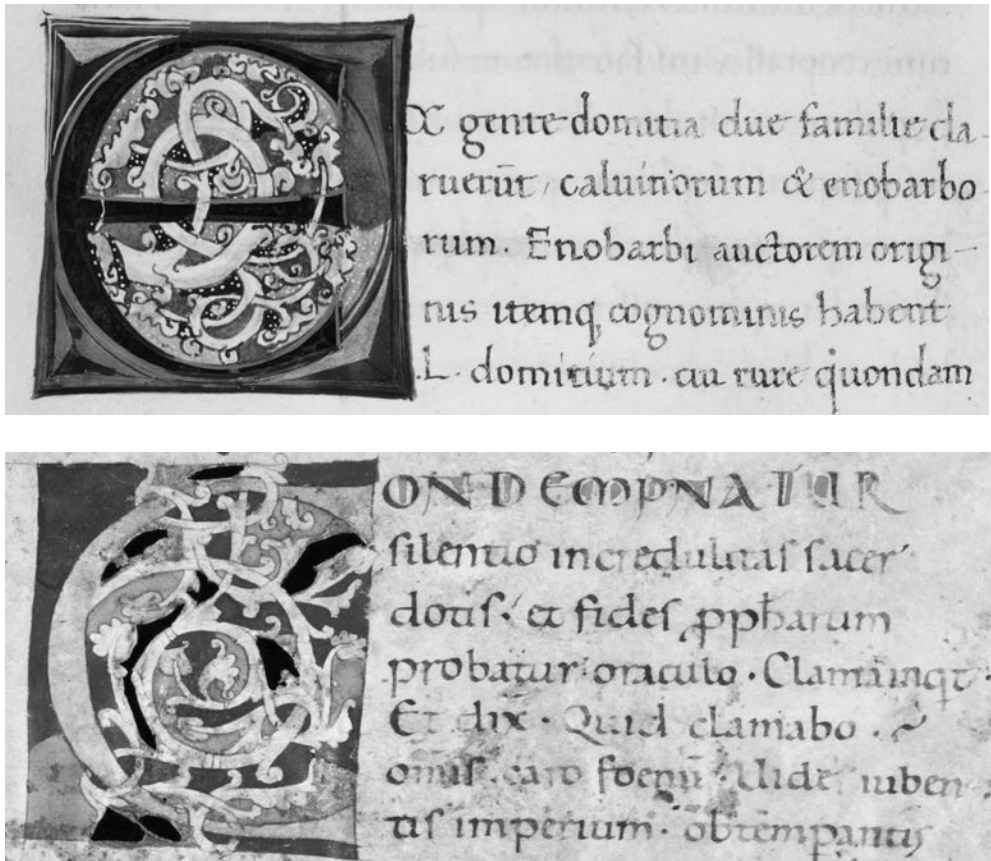 EX gente domitia due familie cla
ruerūt, caluinorum & enobarbo
rum. Enobarbi auctorem origi-
nis itemq cognominis habent
.L. domitium. cu rure quondam
CONDEMPNATUR
silentio incredulitas sacer
dotis. et fides ꝓpħarum
probatur oraculo. Clama inqt.
Et dix. Quid clamabo.
omis. caro foenū. Uide iuben
tis imperium. obtempantis